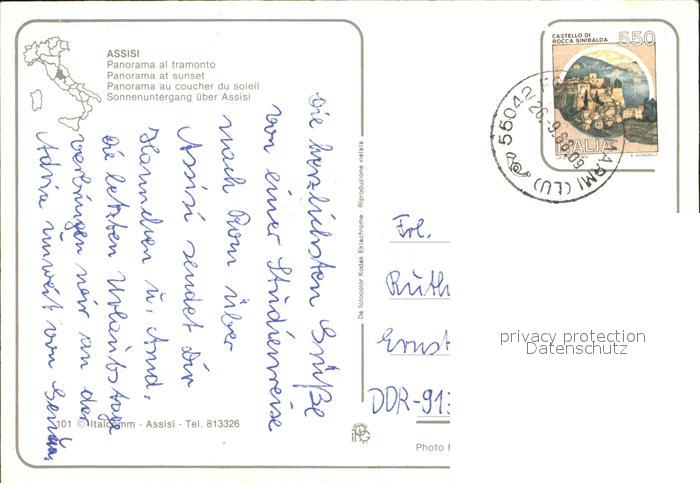 ASSISI
Panorama al tramonto
Panorama at sunset
Panorama au coucher du soleil
Sonnenuntergang über Assisi
CASTELLO DI
ROCCA SINIBALDA
550
ITALIA
55042
26.9.88
ARMI (LU)
Die herzlichsten Grüße
von einer Studienreise
nach Rom über
Assisi sendet Dir
Hannchen u. And.
die letzten Urlaubstage
verbringen wir an der
Adria unweit von
Da fotocolor Kodak Ektachrome - Riproduzione vietata
Frl.
Ruth
Ernst
DDR-913
privacy protection
Datenschutz
101 © Italcomm - Assisi - Tel. 813326
Photo